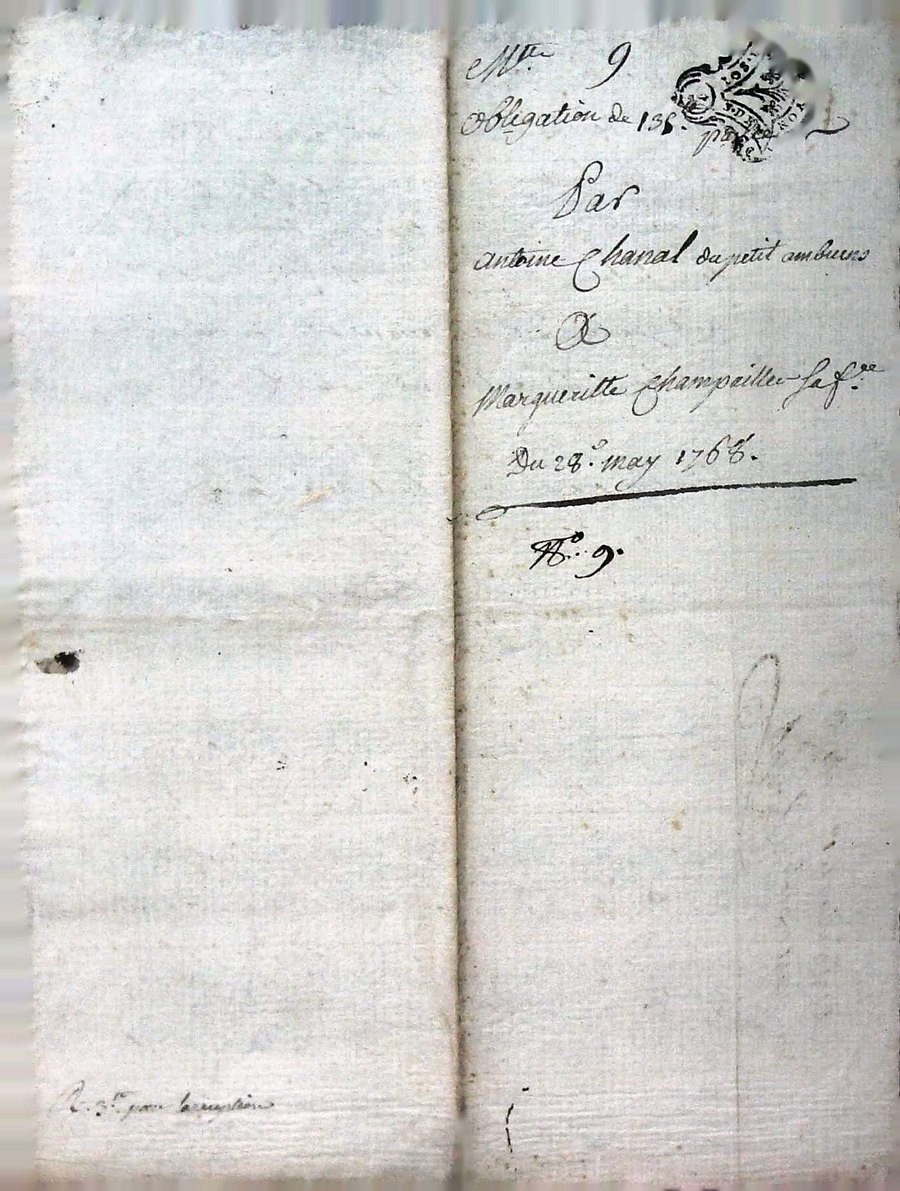 Mtte 9
obligation de 135.
Par
antoine Chanal du petit ambuens
A
Margueritte Champailler sa f.ee
Du 28.e may 1768.
No. 9.
R. 3.tt pour